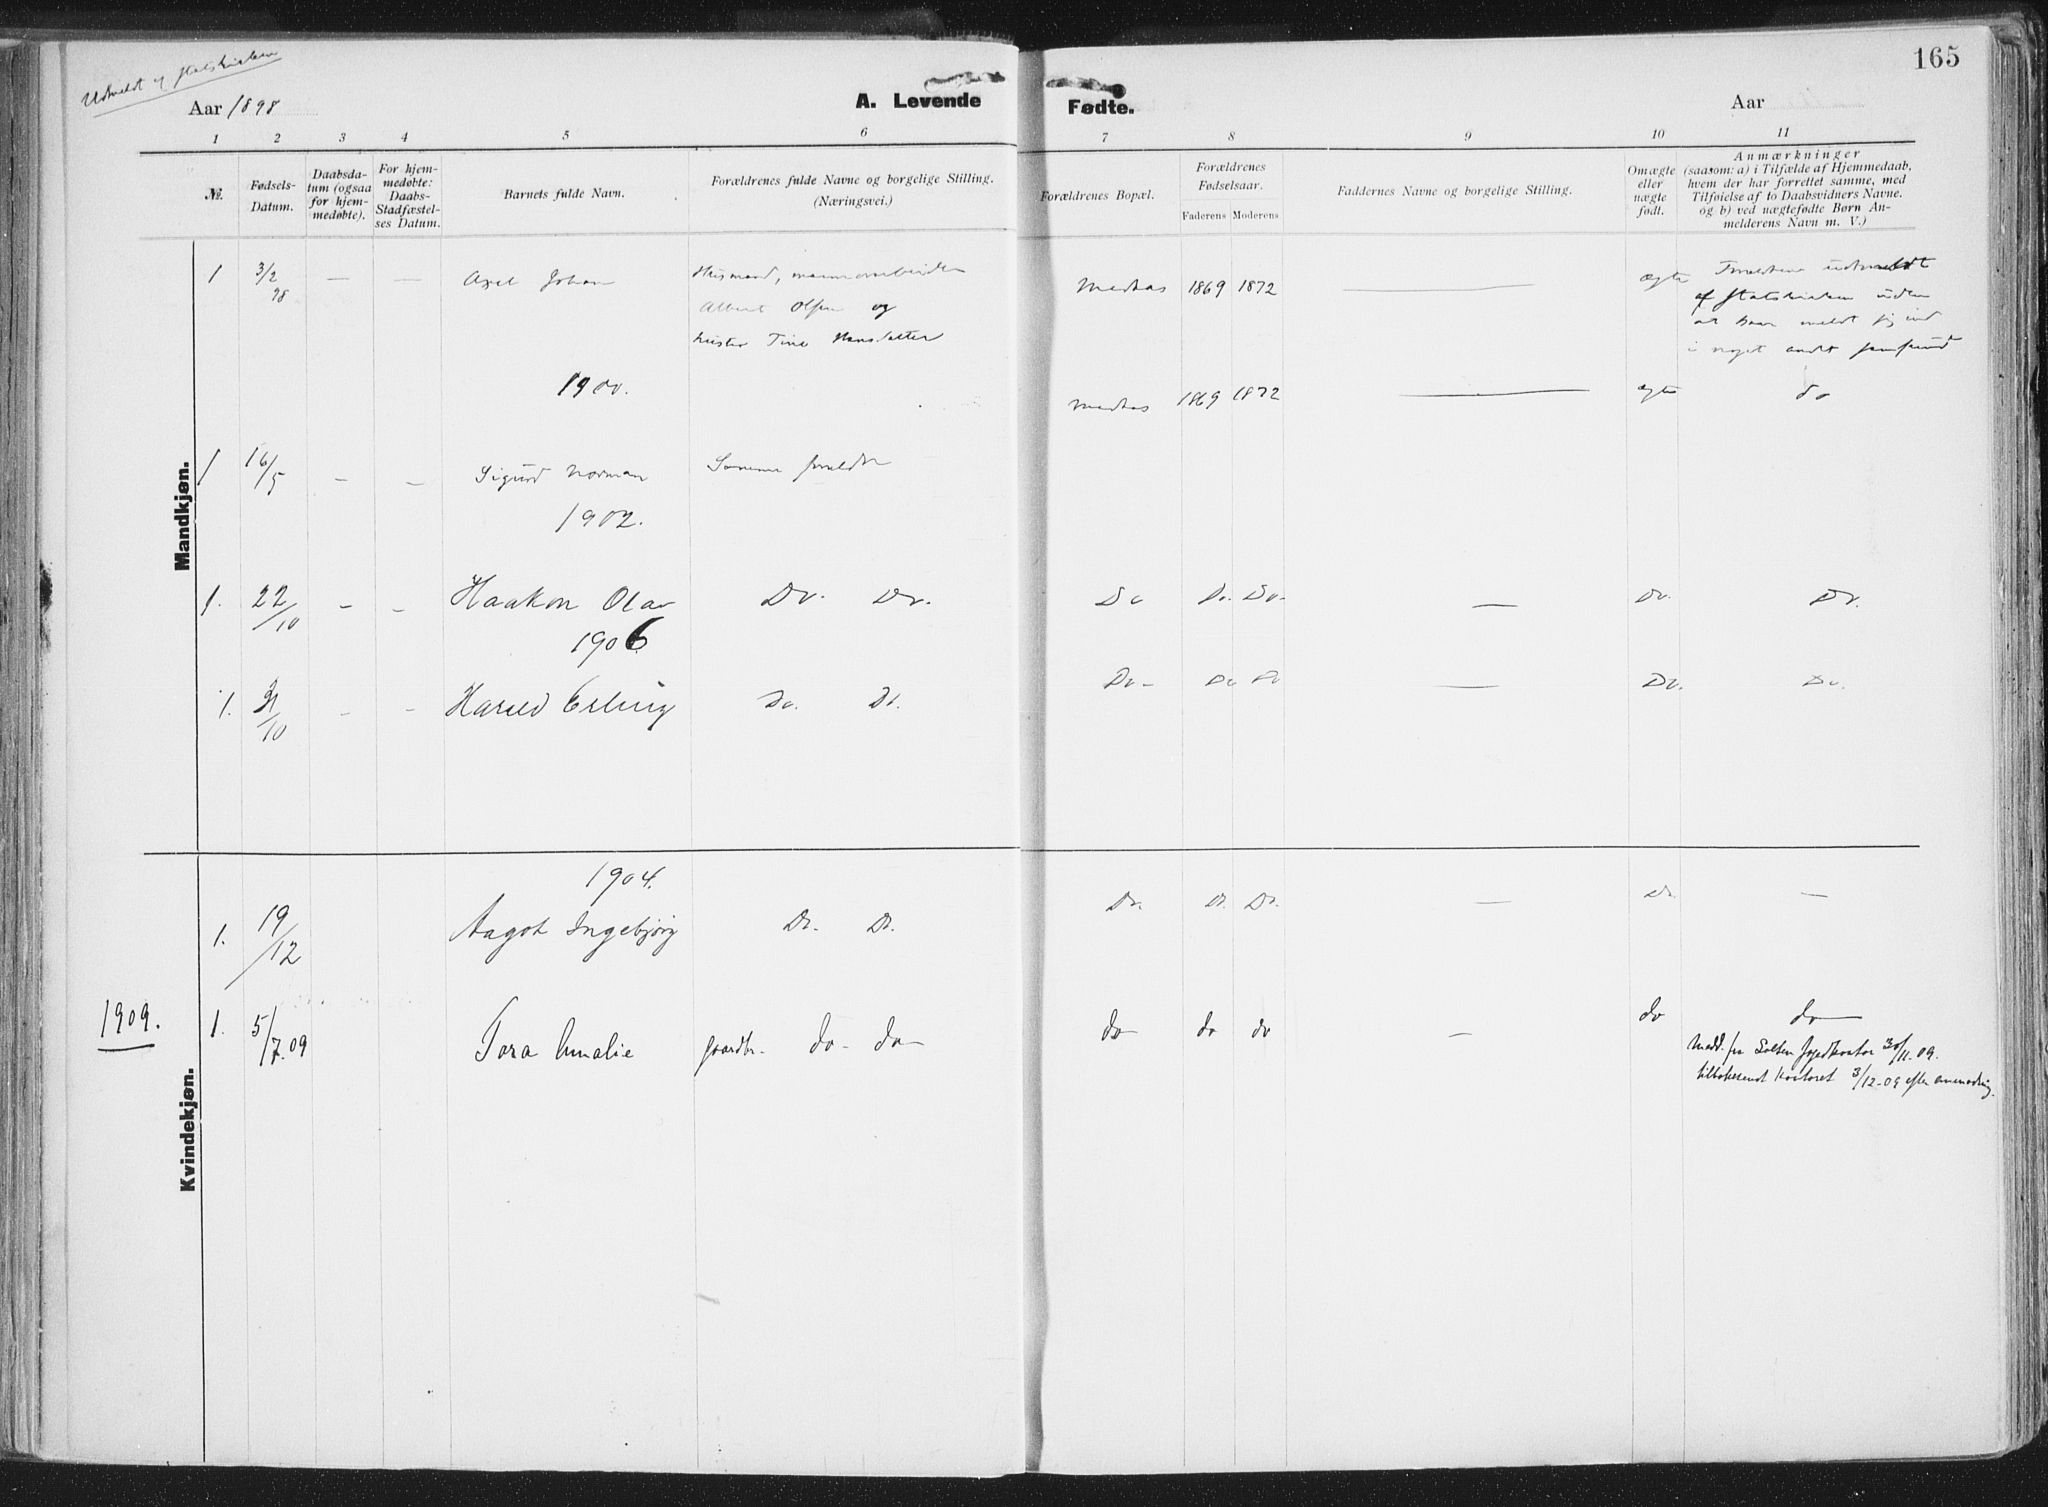 Udmeldt af statskirken
165
Aar 1898 A. Levende Fødte. Aar
1 2 3 4 5 6 7 8 9 10 11
№. Fødsels-Datum. Daabsdatum (ogsaa for hjemmedøbte). For hjemmedøbte: Daabs-Stadfæstelses Datum. Barnets fulde Navn. Forældrenes fulde Navne og borgelige Stilling. (Næringsvei.) Forældrenes Bopæl. Forældrenes Fødselsaar. Faderens Moderens Faddernes Navne og borgelige Stilling. Omægte eller uægte født. Anmærkninger (saasom: a) i Tilfælde af Hjemmedaab, hvem der har forrettet samme, med Tilføielse af to Daabsvidners Navne. og b) ved uægtefødte Børn Anmelderens Navn m. V.)
Mandkjøn.
1 3/2 98 — — Axel Johan Husmand, Albert Olsen og hustru Tine Hansdatter 1869 1872 — ægte Forældrene udmeldt af statskirken uden at have meldt sig ind i noget andet samfund
1900.
1 16/5 — — Sigurd Norman Samme forældre 1869 1872 — ægte do
1902.
1. 22/10 — — Haakon Olav Do. Do. Do Do. Do. — Do. Do.
1906
1. /10 — — Harald Erling Do. Do. Do — Do Do — Do. Do.
Kvindekjøn.
1904.
1. 19/12 Aagot Ingebjørg Do. Do. Do. Do. Do. — Do. —
1909. 1. 5/7.09 Tora Amalie gaardbr. do — do do do do — do do
Medd. fra Salten fogedkontor 30/11.09.
tilbakesendt kontoret 3/12-09 efter